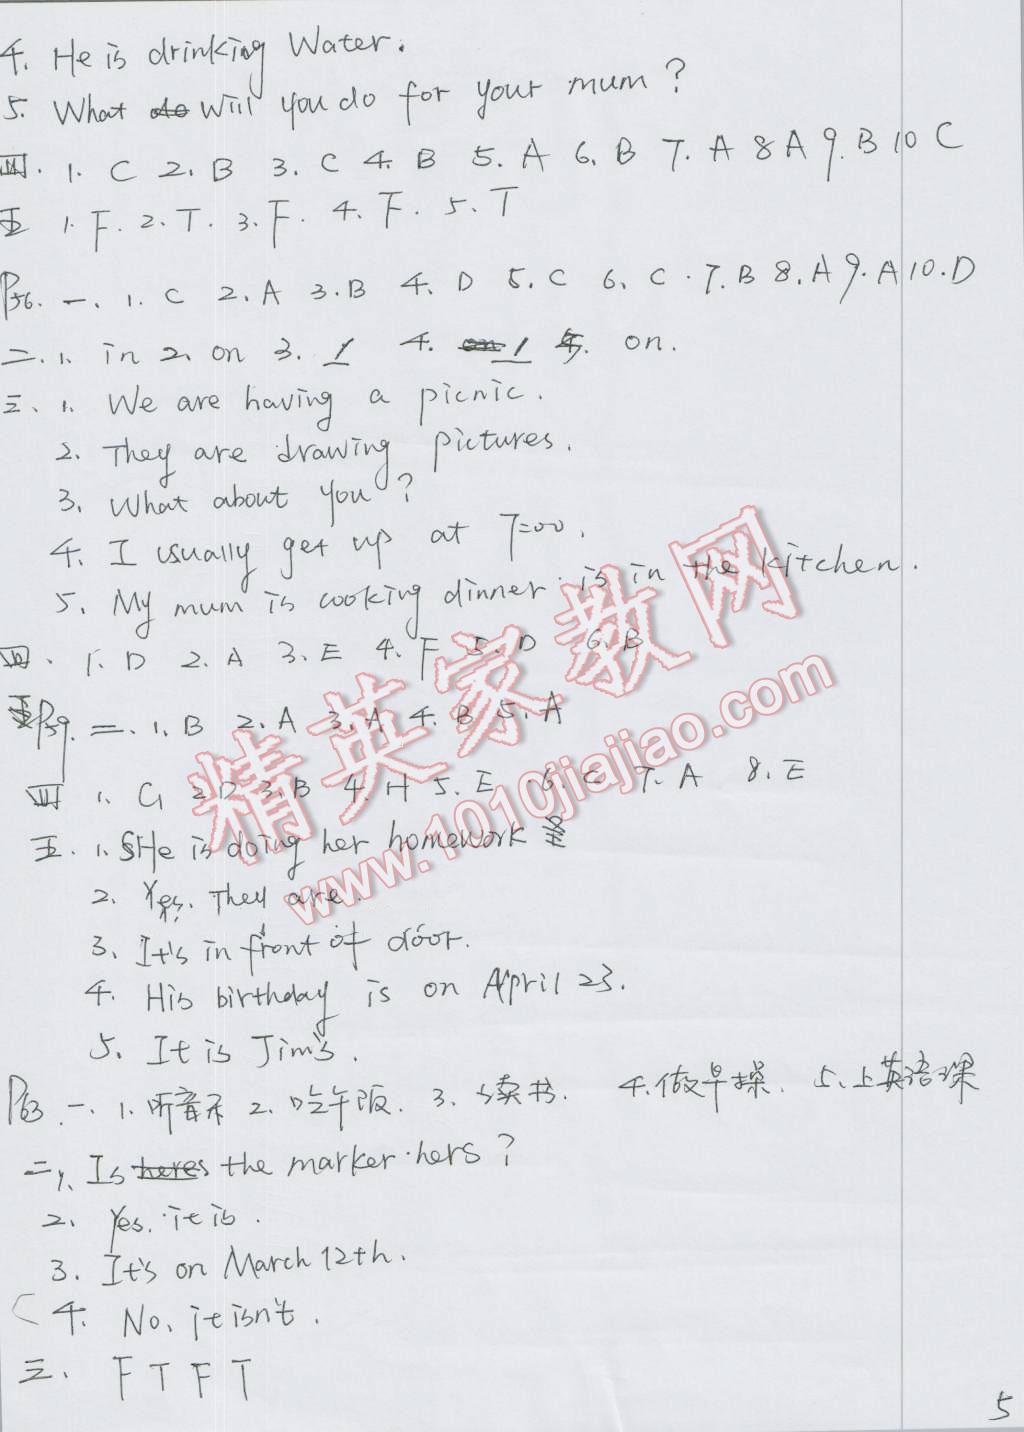 4. He is drinking Water.
5. What do will you do for your mum?
四. 1. C 2. B 3. C 4. B 5. A 6. B 7. A 8 A 9. B 10 C
五 1. F. 2. T. 3. F. 4. F. 5. T
P56. 一. 1. C 2. A 3. B 4. D 5. C 6. C. 7. B 8. A 9. A 10. D
二. 1. in 2. on 3. / 4. on / 5. on.
三. 1. We are having a picnic.
2. They are drawing pictures.
3. What about you?
4. I usually get up at 7:00.
5. My mum is cooking dinner is in the kitchen.
四. 1. D 2. A 3. E 4. F 5. D 6. B
五 P59. 二. 1. B 2. A 3. A 4. B 5. A
四 1. G 2 D 3. B 4. H 5. E 6. C 7. A 8. E
五. 1. SHe is doing her homework
2. Yes. They are.
3. It's in front of door.
4. His birthday is on April 23.
5. It is Jim's.
P63. 一. 1. 听音乐 2. 吃午饭. 3. 读书. 4. 做早操. 5. 上英语课
二 1. Is heres the marker hers?
2. Yes. it is.
3. It's on March 12th.
4. No, it isn't.
三. F T F T
5
精英家教网
www.1010jiajiao.com